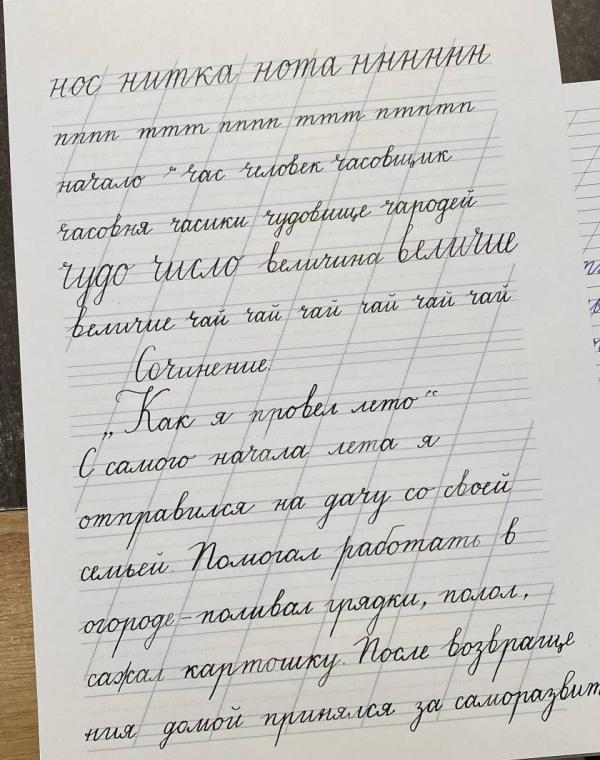 нос нитка нота нннннн
пппп ттт пппп ттт птптп
начало ч час человек часовщик
часовня часики чудовище чародей
чудо число величина величие
величие чай чай чай чай чай чай
Сочинение.
„Как я провел лето“
С самого начала лета я
отправился на дачу со своей
семьей. Помогал работать в
огороде – поливал грядки, полол,
сажал картошку. После возвраще
ния домой принялся за саморазвит